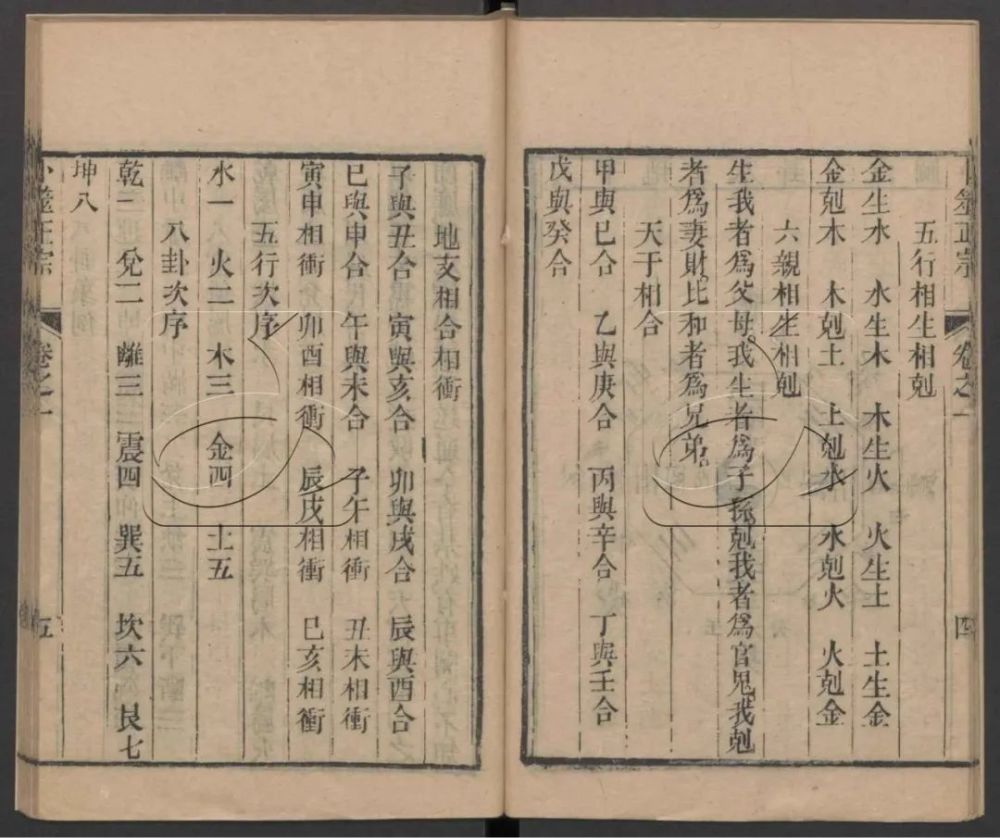 卜筮正宗　卷之一　四
五行相生相剋
金生水　水生木　木生火　火生土　土生金
金剋木　木剋土　土剋水　水剋火　火剋金
六親相生相剋
生我者爲父母我生者爲子孫剋我者爲官鬼我剋
者爲妻財比和者爲兄弟
天干相合
甲與己合　乙與庚合　丙與辛合　丁與壬合
戊與癸合
地支相合相衝
子與丑合　寅與亥合　卯與戌合　辰與酉合
巳與申合　午與未合　子午相衝　丑未相衝
寅申相衝　卯酉相衝　辰戌相衝　巳亥相衝
五行次序
水一　火二　木三　金四　土五
八卦次序
乾一　兌二　離三　震四　巽五　坎六　艮七
坤八
卜筮正宗　卷之一　五